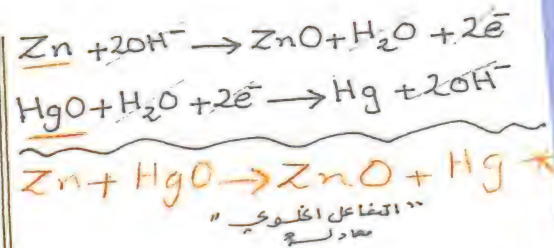 Zn + 2OH⁻ → ZnO + H₂O + 2e⁻
HgO + H₂O + 2e⁻ → Hg + 2OH⁻
Zn + HgO → ZnO + Hg
"التفاعل الخلوي"